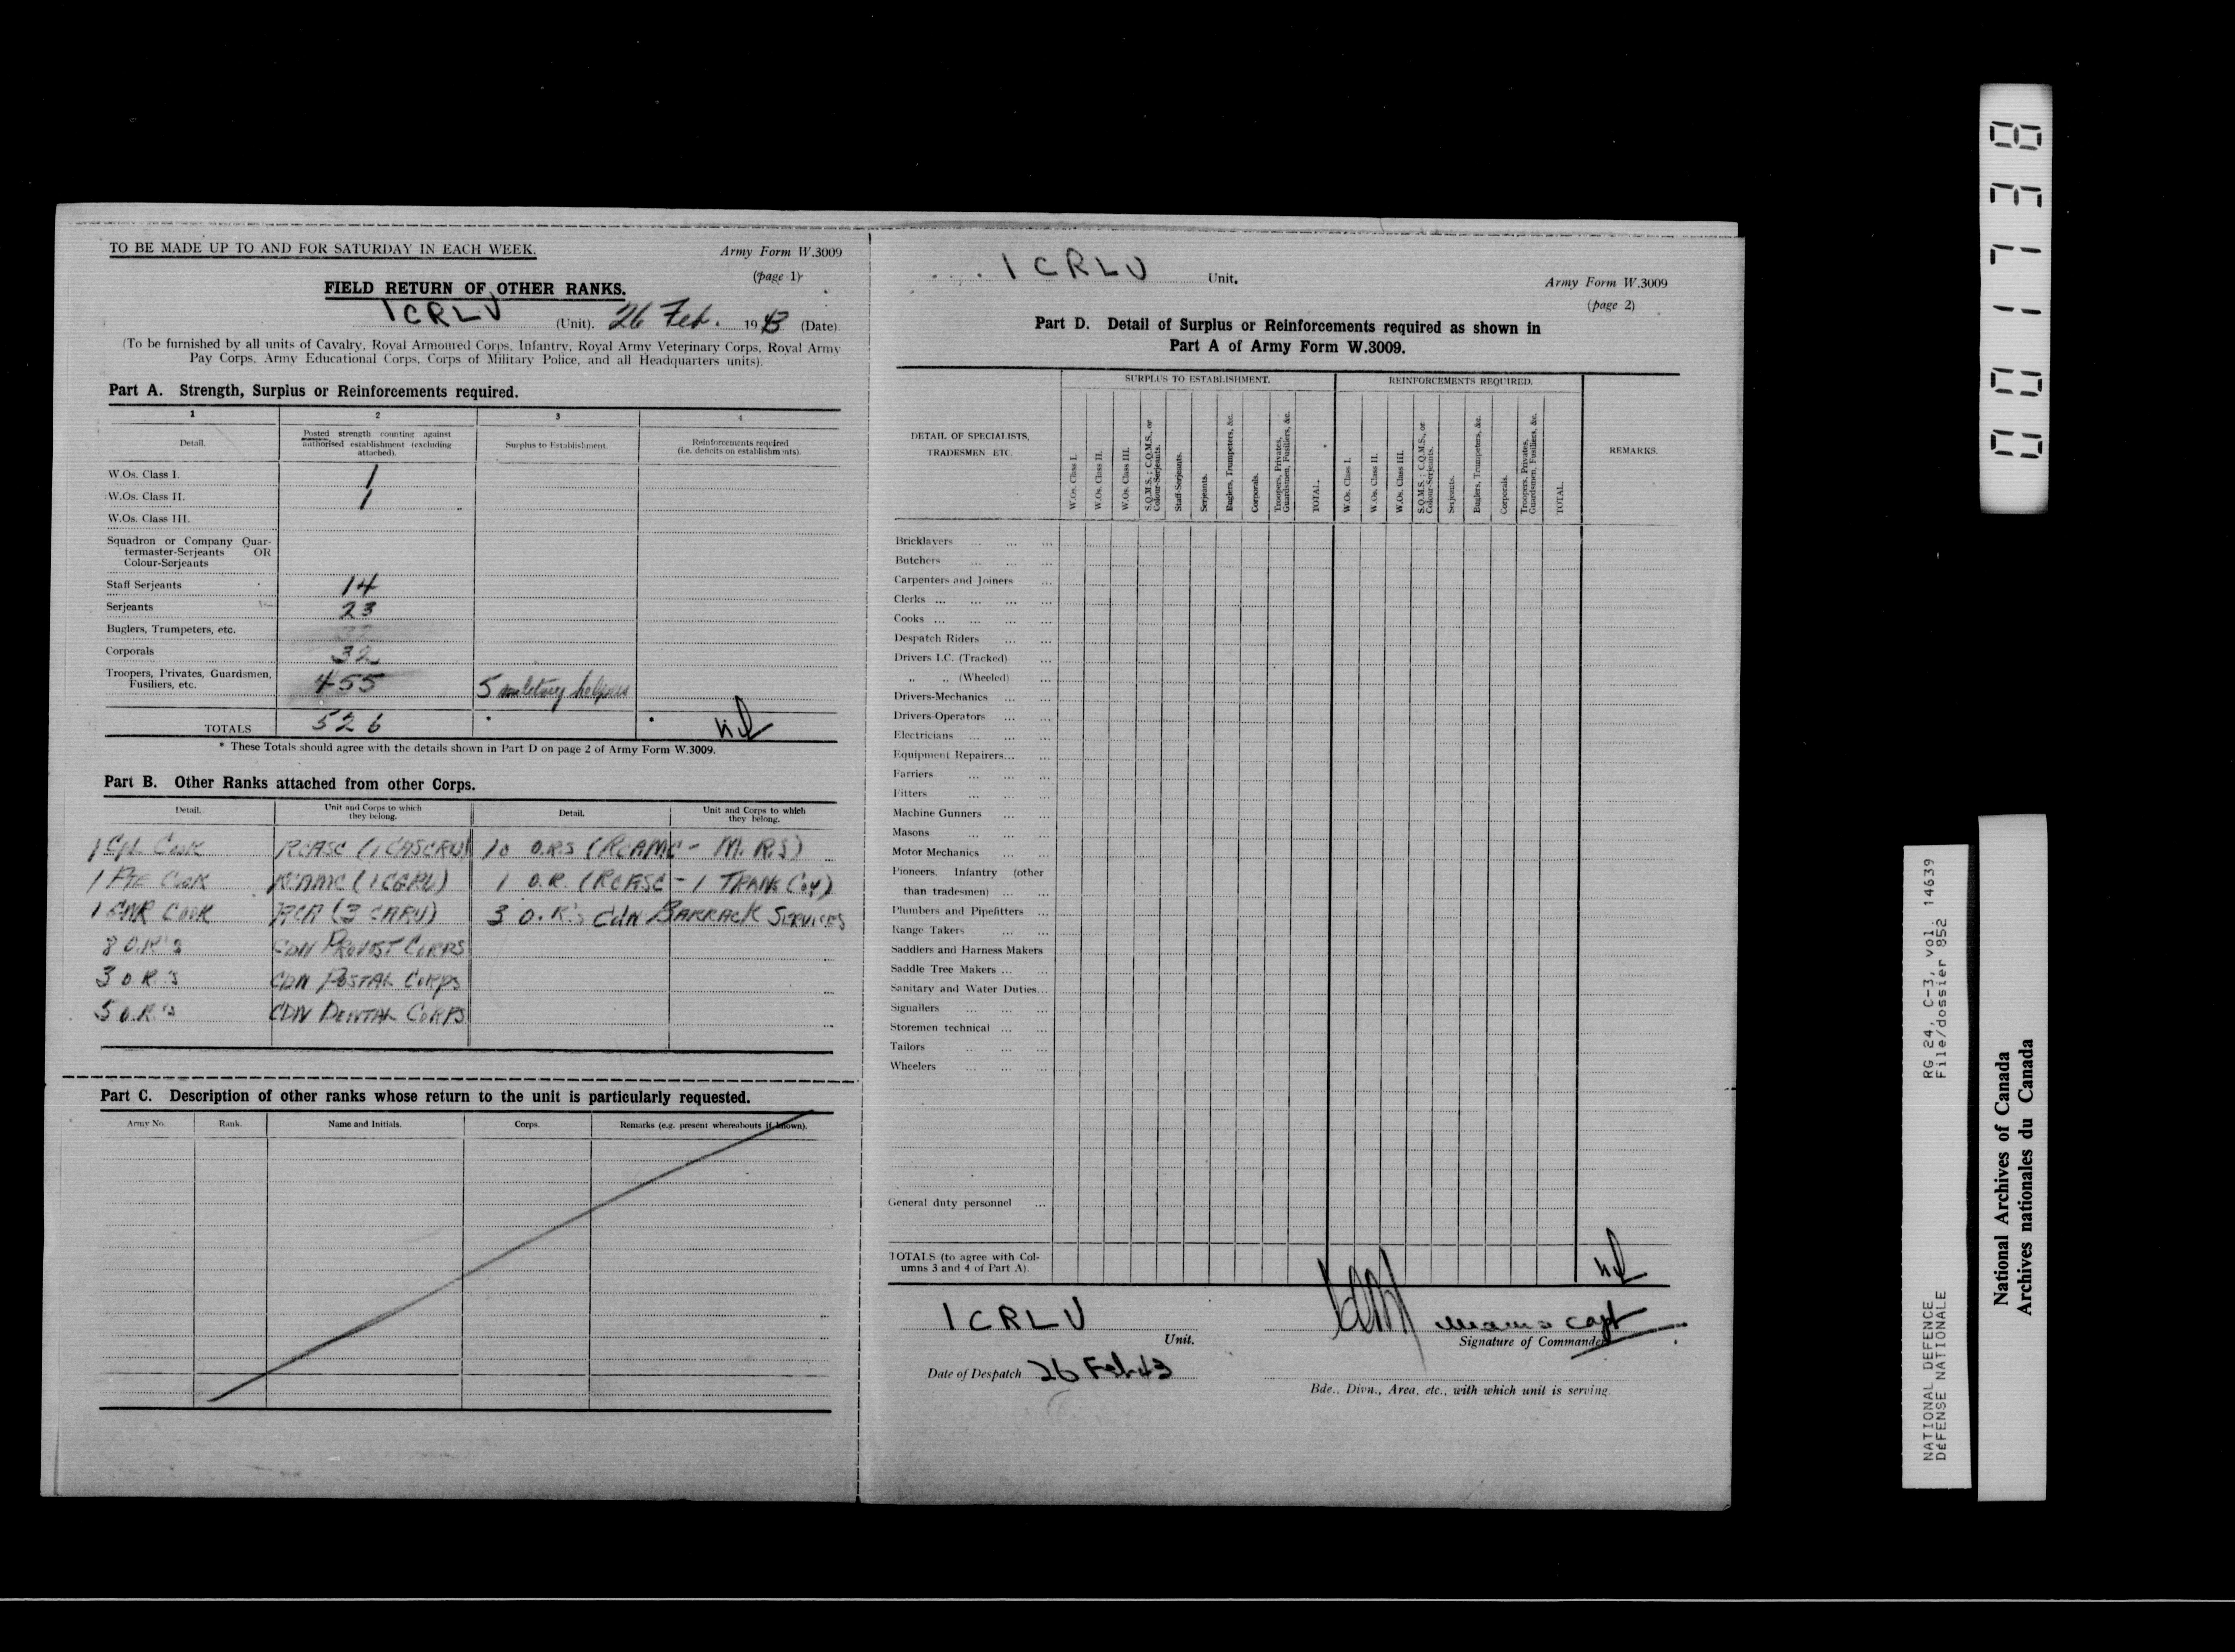 TO BE MADE UP TO AND FOR SATURDAY IN EACH WEEK.
Army Form W.3009
(page 1)
FIELD RETURN OF OTHER RANKS.
1 CRLU (Unit). 26 Feb. 1943 (Date)
(To be furnished by all units of Cavalry, Royal Armoured Corps, Infantry, Royal Army Veterinary Corps, Royal Army
Pay Corps, Army Educational Corps, Corps of Military Police, and all Headquarters units).
Part A. Strength, Surplus or Reinforcements required.
1 2 3 4
Detail. Posted strength counting against authorised establishment (excluding attached). Surplus to Establishment. Reinforcements required (i.e. deficits on establishments).
W.Os. Class I. 1
W.Os. Class II. 1
W.Os. Class III.
Squadron or Company Quar-
termaster-Serjeants OR
Colour-Serjeants
Staff Serjeants 14
Serjeants 23
Buglers, Trumpeters, etc.
Corporals 32
Troopers, Privates, Guardsmen,
Fusiliers, etc. 455 5 military helpers
TOTALS 526 * * Nil
* These Totals should agree with the details shown in Part D on page 2 of Army Form W.3009.
Part B. Other Ranks attached from other Corps.
Detail. Unit and Corps to which they belong. Detail. Unit and Corps to which they belong.
1 Cpl. Cook RCASC (1 CASCRU) 10 O.R.S (RCAMC - M.R.S)
1 Pte Cook RCAMC (1 CGRU) 1 O.R. (RCASC - 1 TRANS Coy)
1 GNR COOK RCA (3 CARU) 3 O.R's CDN BARRACK SERVICES
8 O.R's CDN PROVOST CORPS
3 O.R.'s CDN POSTAL CORPS
5 O.R.'s CDN DENTAL CORPS
Part C. Description of other ranks whose return to the unit is particularly requested.
Army No. Rank. Name and Initials. Corps. Remarks (e.g. present whereabouts if known).
1 CRLU Unit.
Army Form W.3009
(page 2)
Part D. Detail of Surplus or Reinforcements required as shown in
Part A of Army Form W.3009.
DETAIL OF SPECIALISTS,
TRADESMEN ETC.
SURPLUS TO ESTABLISHMENT.
W.Os. Class I.
W.Os. Class II.
W.Os. Class III.
S.Q.M.S.; C.Q.M.S., or
Colour-Serjeants.
Staff-Serjeants.
Serjeants.
Buglers, Trumpeters, &c.
Corporals.
Troopers, Privates,
Guardsmen, Fusiliers, &c.
TOTAL.
REINFORCEMENTS REQUIRED.
W.Os. Class I.
W.Os. Class II.
W.Os. Class III.
S.Q.M.S.; C.Q.M.S., or
Colour-Serjeants.
Serjeants.
Buglers, Trumpeters, &c.
Corporals.
Troopers, Privates,
Guardsmen, Fusiliers, &c.
TOTAL.
REMARKS.
Bricklayers ... ... ...
Butchers ... ... ...
Carpenters and Joiners ...
Clerks ... ... ... ...
Cooks ... ... ... ...
Despatch Riders ... ...
Drivers I.C. (Tracked) ...
„ „ (Wheeled) ...
Drivers-Mechanics ... ...
Drivers-Operators ... ...
Electricians ... ... ...
Equipment Repairers... ...
Farriers ... ... ...
Fitters ... ... ...
Machine Gunners ... ...
Masons ... ... ...
Motor Mechanics ... ...
Pioneers, Infantry (other
than tradesmen) ... ...
Plumbers and Pipefitters ...
Range Takers ... ...
Saddlers and Harness Makers
Saddle Tree Makers ... ...
Sanitary and Water Duties...
Signallers ... ... ...
Storemen technical ... ...
Tailors ... ... ...
Wheelers ... ... ...
General duty personnel ...
TOTALS (to agree with Col-
umns 3 and 4 of Part A). Nil
1 CRLU
Unit.
Capt
Signature of Commander
Date of Despatch 26 Feb 43
Bde., Divn., Area, etc., with which unit is serving.
001738
RG 24, C-3, vol. 14639
File/dossier 852
NATIONAL DEFENCE
DéFENSE NATIONALE
National Archives of Canada
Archives nationales du Canada